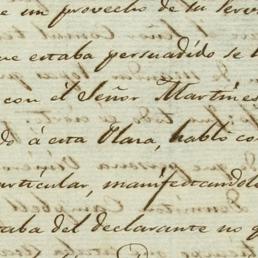 e un provecho de su serv
ue estaba persuadido se h
con el Señor Martines
do á esta Clara, habló co
articular, manifestandole
taba del declarante no q